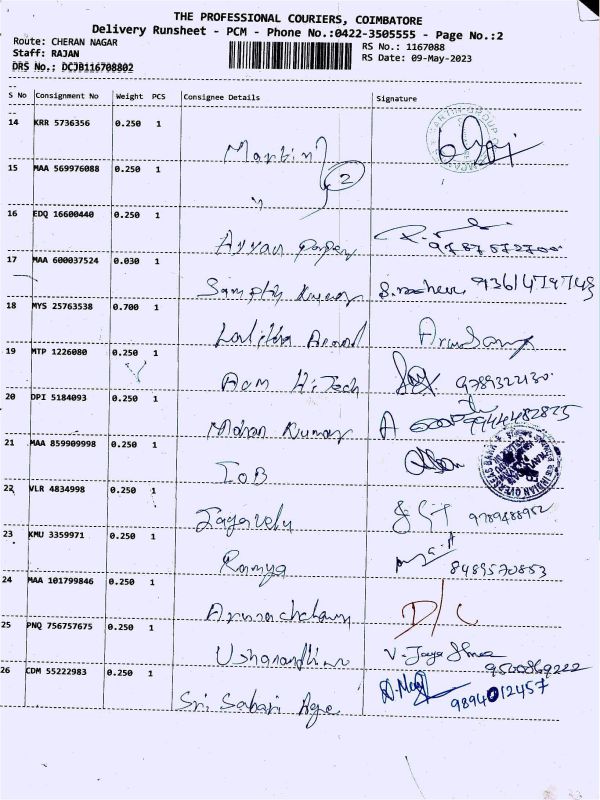 THE PROFESSIONAL COURIERS, COIMBATORE
Delivery Runsheet - PCM - Phone No.:0422-3505555 - Page No.:2
Route: CHERAN NAGAR
RS No.: 1167088
Staff: RAJAN
RS Date: 09-May-2023
DRS No.: DCJB116708802
S No Consignment No Weight PCS Consignee Details Signature
14 KRR 5736356 0.250 1 Martin
15 MAA 569976088 0.250 1 " 2
16 EDQ 16600440 0.250 1 Ayyan Papery 9787572700
17 MAA 600037524 0.030 1 Sampth Kumar 9361479748
18 MYS 25763538 0.700 1 Lalitha Anand
19 MTP 1226080 0.250 1 Aam Hi Tech 9789322130
20 DPI 5184093 0.250 1 Mohan Kumar 9944482825
21 MAA 859909998 0.250 1 IOB INDIAN OVERSEAS BANK
22 VLR 4834998 0.250 1 Jayavelu 9789488952
23 KMU 3359971 0.250 1 Ramya 8489570883
24 MAA 101799846 0.250 1 Arunachalam D/C
25 PNQ 756757675 0.250 1 V. Jaya 9500869222
26 CDM 55222983 0.250 1 Sri Sabari 9894012457